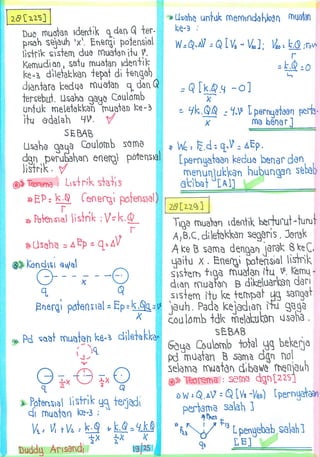 28 [225]
Dua muatan identik q dan Q ter-
pisah sejauh 'x'. Energi potensial
listrik sistem dua muatan itu V.
Kemudian, satu muatan identik
ke-3 diletakkan tepat di tengah
diantara kedua muatan q dan Q
tersebut. Usaha gaya Coulomb
untuk meletakkan muatan ke-3
itu adalah 4V.
SEBAB
Usaha gaya Coulomb sama
dgn perubahan energi potensial
listrik.
Teorema Listrik statis
EP = k.Q (energi potensial)
Potensial listrik : V = k.Q
r
Usaha = ΔEp = q.ΔV
Kondisi awal
Q x Q
Energi potensial = Ep = k.Qq = V
x
Pd saat muatan ke-3 diletakkan
½x ½x
Q Q
Potensial listrik yg terjadi
di muatan ke-3 :
V₃ = V₁ + V₂ = k.Q + k.Q = 4.kQ
½x ½x x
Duddy Arisandi 19/25
Usaha untuk memindahkan muatan
ke-3 :
W = Q.ΔV = Q [V₃ - V∞]; V∞ = k.Q
r
= k.Q = 0
= Q [k.Q 4 - 0]
x
= 4k.QQ = 4.V [pernyataan perta-
x ma benar]
W = F.d = q.V = ΔEp.
[pernyataan kedua benar dan
menunjukkan hubungan sebab
akibat [A]]
29 [229]
Tiga muatan identik berturut-turut
A, B, C, diletakkan segaris. Jarak
A ke B sama dengan jarak B ke C,
yaitu x. Energi potensial listrik
sistem tiga muatan itu V. Kemu-
dian muatan B dikeluarkan dari
sistem itu ke tempat yg sangat
jauh. Pada kejadian itu gaya
Coulomb tdk melakukan usaha.
SEBAB
Gaya Coulomb total yg bekerja
pd muatan B sama dgn nol
selama muatan dibawa menjauh
Teorema : sama dgn [225]
W = Q.ΔV = Q [V₃ - V∞] [pernyataan
pertama salah]
[penyebab salah]
[E]